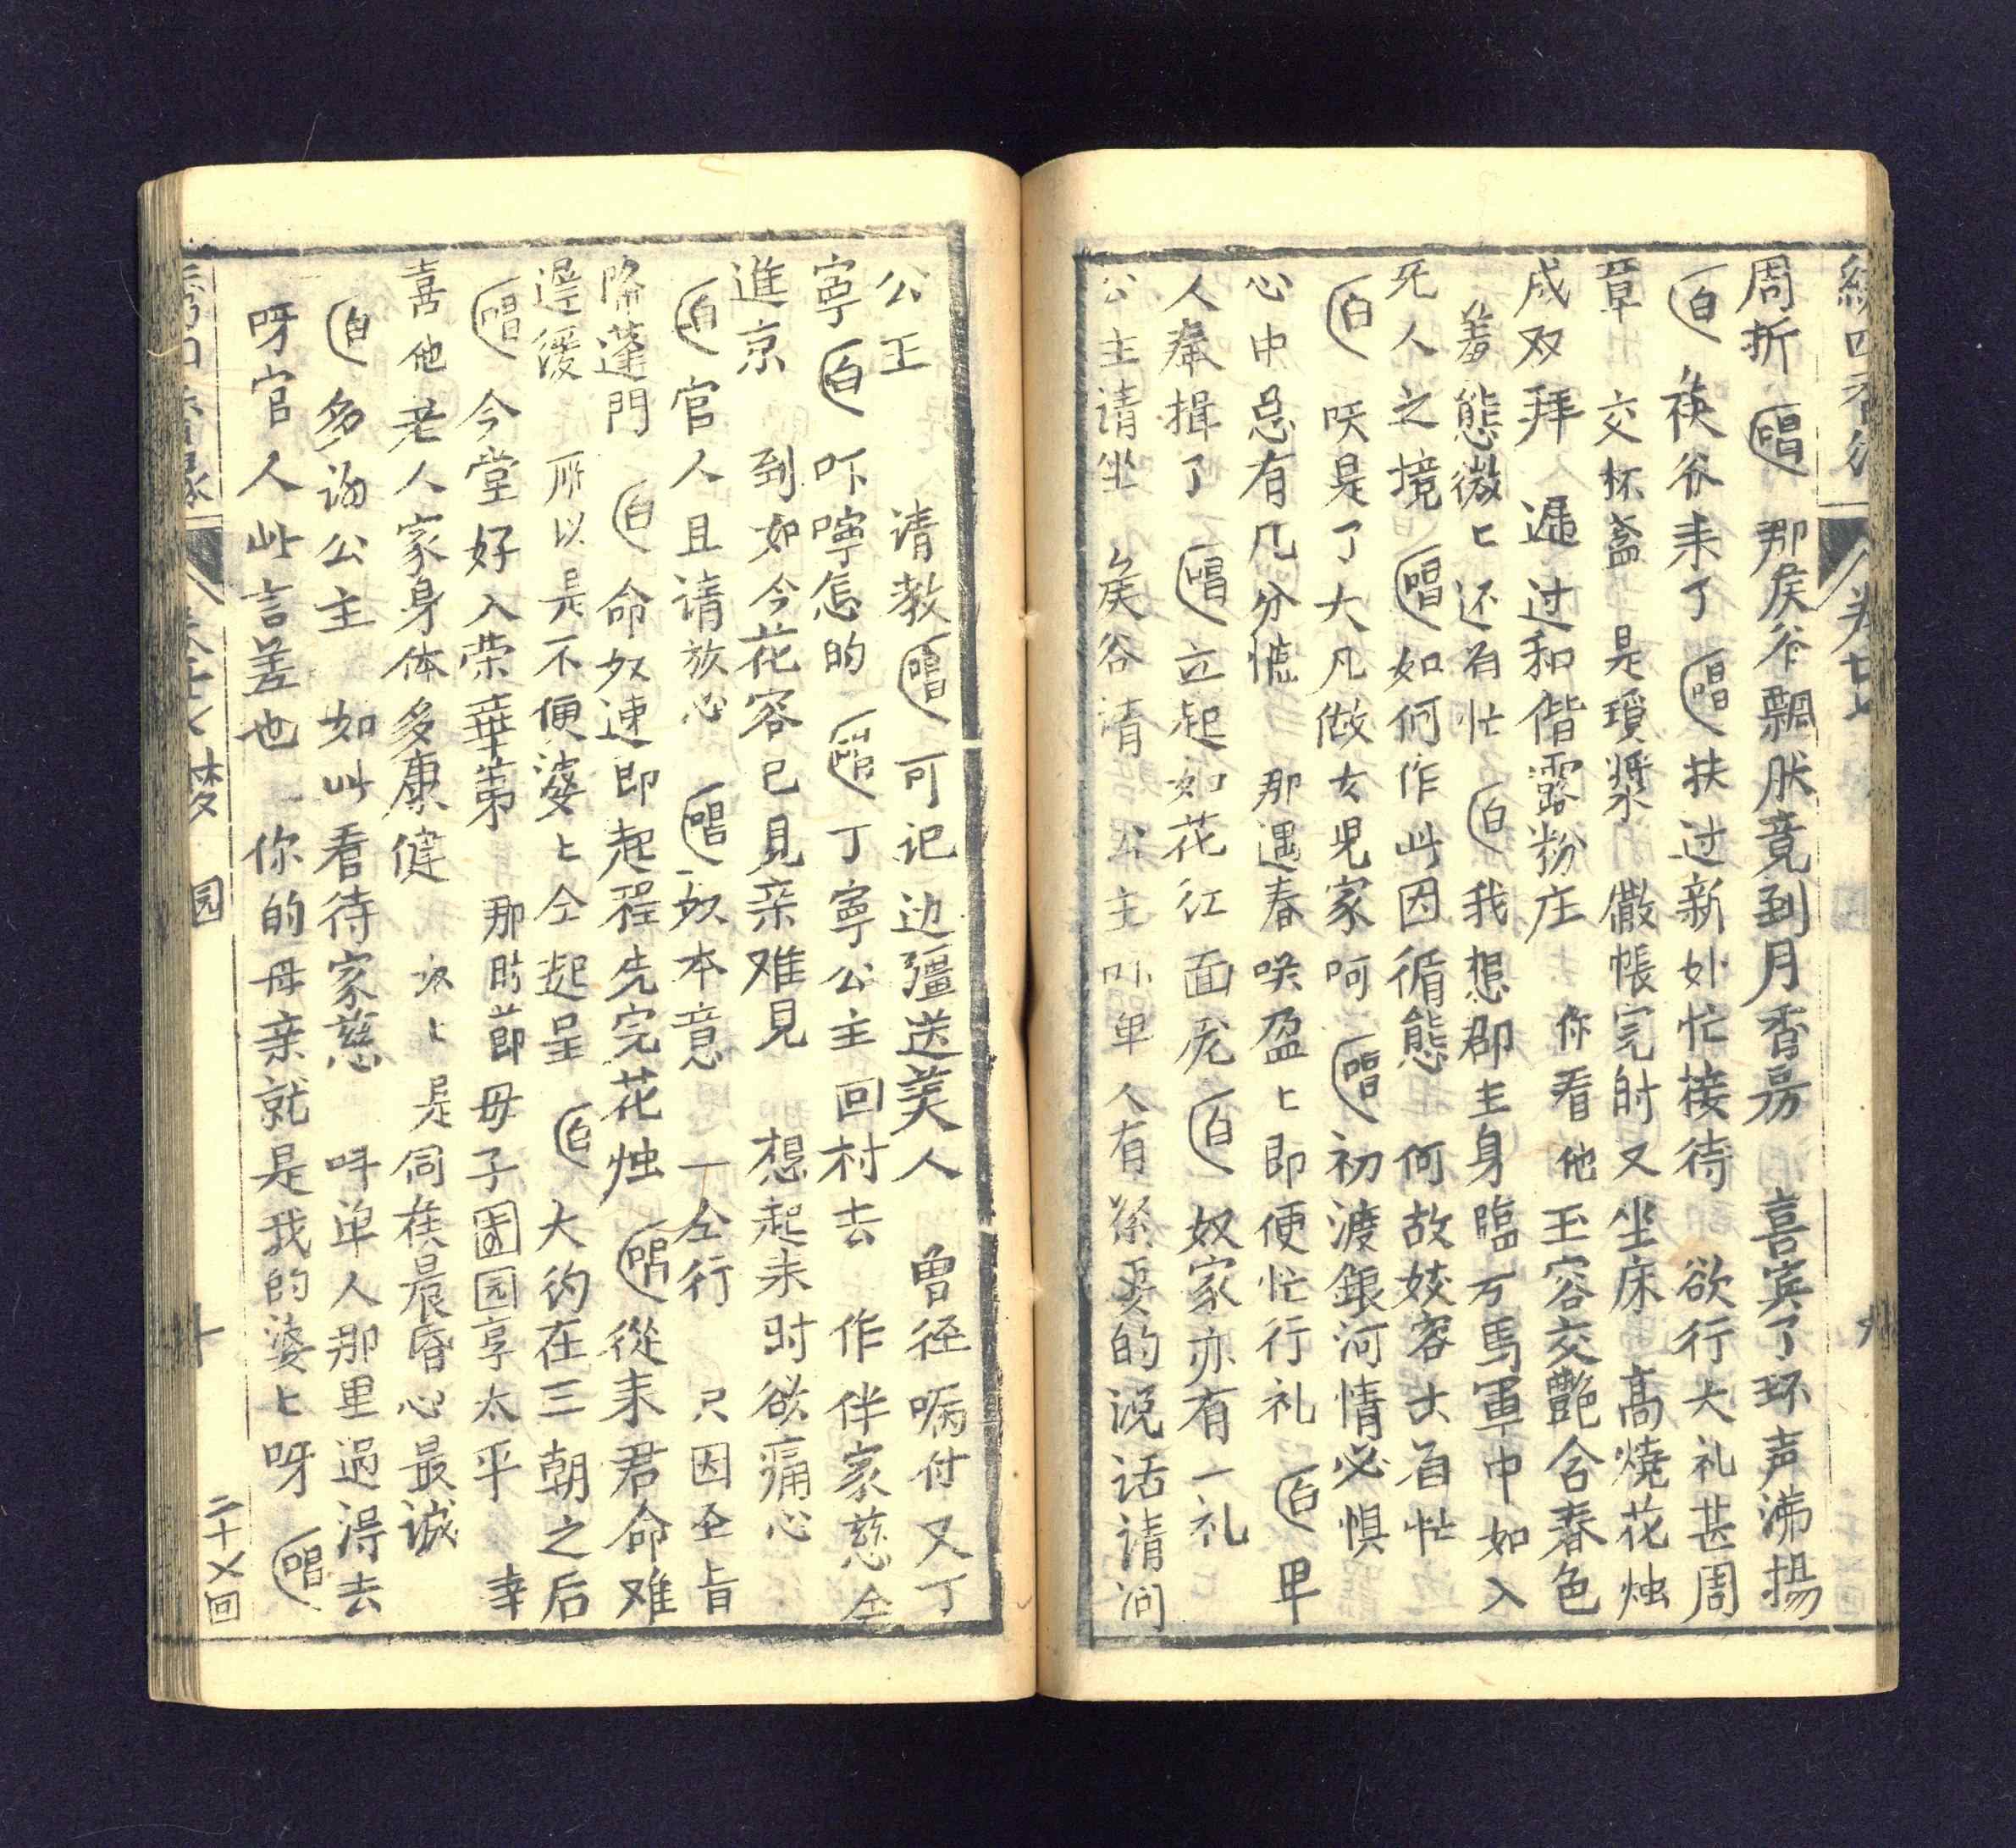 周折 唱 那矦爷飄肰竟到月香房 喜宾了环声沸揚
白 矦谷来了 唱 扶过新妙忙接待 欲行大礼甚周
章 交杯盞 是瓊漿 儆帳完时又坐床 高燒花烛
成双拜 遥过和偕露粉庄 你看他玉容交艷含春色
羞態微㇄还有忙 白 我想郡主身臨万馬軍中如入
死人之境 唱 如何作此因循態 何故姣容古有忙
白 咲是了大凡做女児家呵 唱 初渡銀河情必惧
心中总有几分慌 那遇春咲盈㇄即便忙行礼 白 甲
人奉揖了 唱 立起如花红面庞 白 奴家亦有一礼
公主请坐 矦谷请 公主吓单人有紧要的说话请问
公主 请教 唱 可记边疆送美人 曾径嘱付又丁
寧 白 吓嚀怎的 唱 丁寧公主回村去 作伴家慈仝
進京 到如今花容已見亲难見 想起来时欲痛心
白 官人且请放心 唱 奴本意 一仝行 只因圣旨
降蓬門 白 命奴速即起程先完花烛 唱 從来君命难
遅缓 所以是不便婆㇄仝起呈 白 大约在三朝之后
唱 今堂好入荣華第 那时節母子团园享太平 幸
喜他老人家身体多康健 ㇄是伺矦晨昏心最诚
白 多谢公主 如此看待家慈 呌单人那里過得去
呀官人此言差也 你的母亲就是我的婆㇄呀 唱
园
十
二十七回